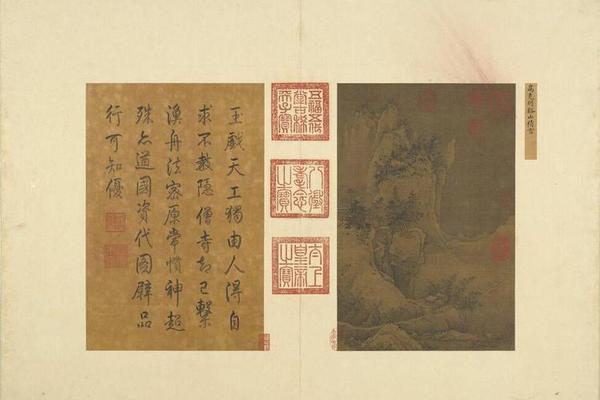 高克明谿山積雪
五福五代堂古稀天子寶
八徵耄念之寶
太上皇帝之寶
玉戲天工獨由人得自
求不教隱僧寺却已繫
漁舟法家原常慣神超
殊亦遒國資代國品
行可知優